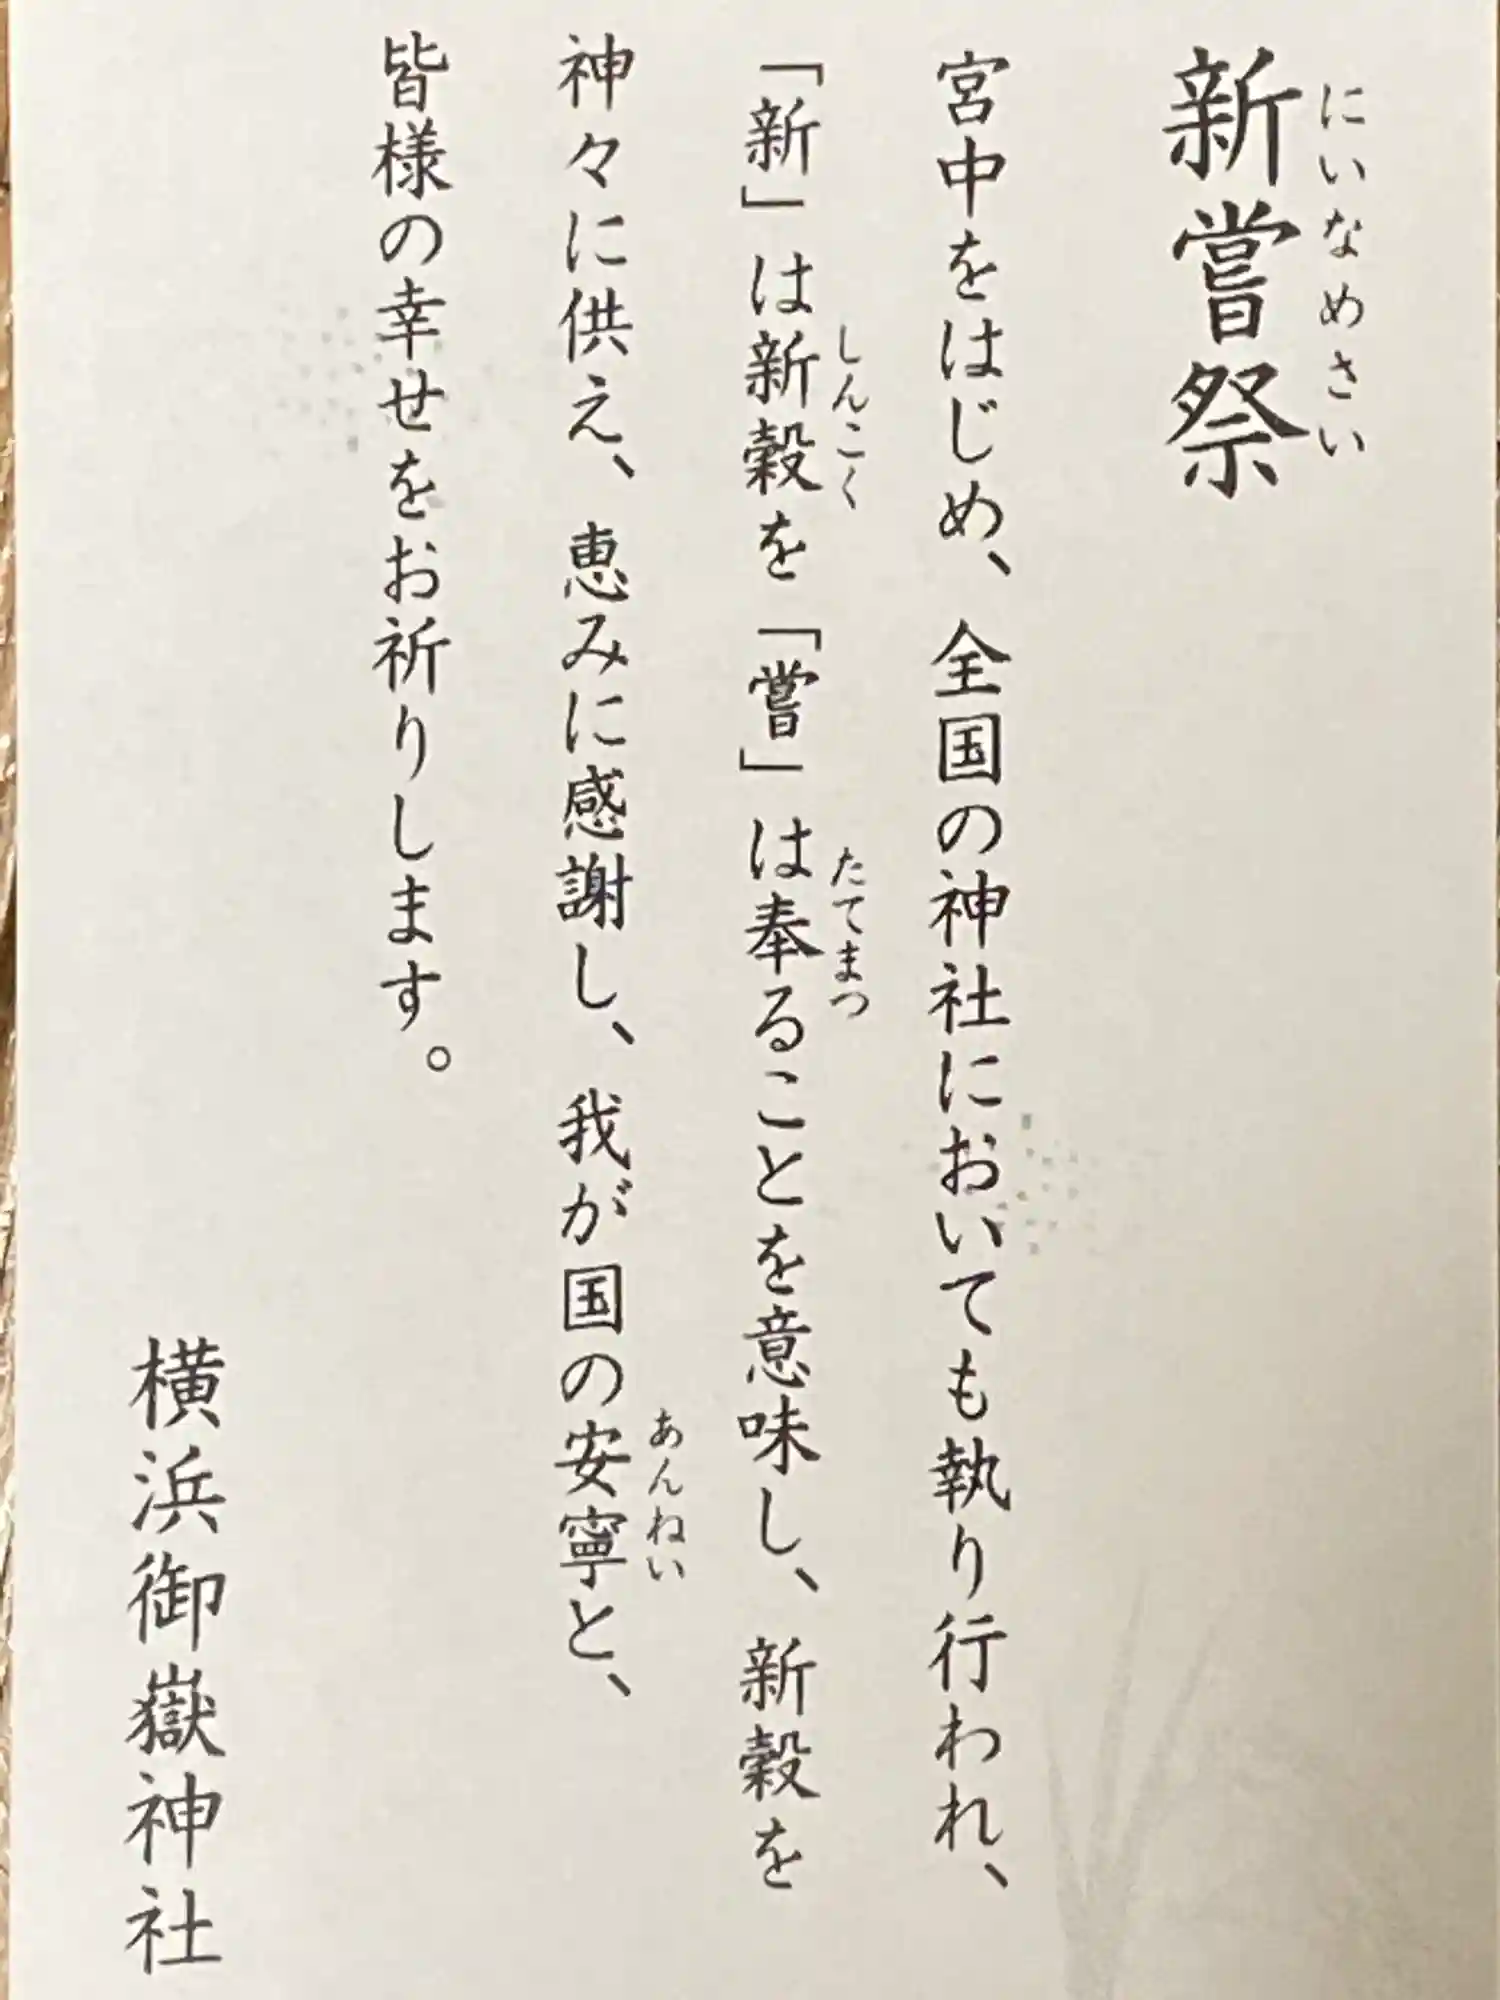 新嘗祭
にいなめさい
宮中をはじめ、全国の神社においても執り行われ、
「新」は新穀を「嘗」は奉ることを意味し、新穀を
しんこく
たてまつ
神々に供え、恵みに感謝し、我が国の安寧と、
あんねい
皆様の幸せをお祈りします。
横浜御嶽神社